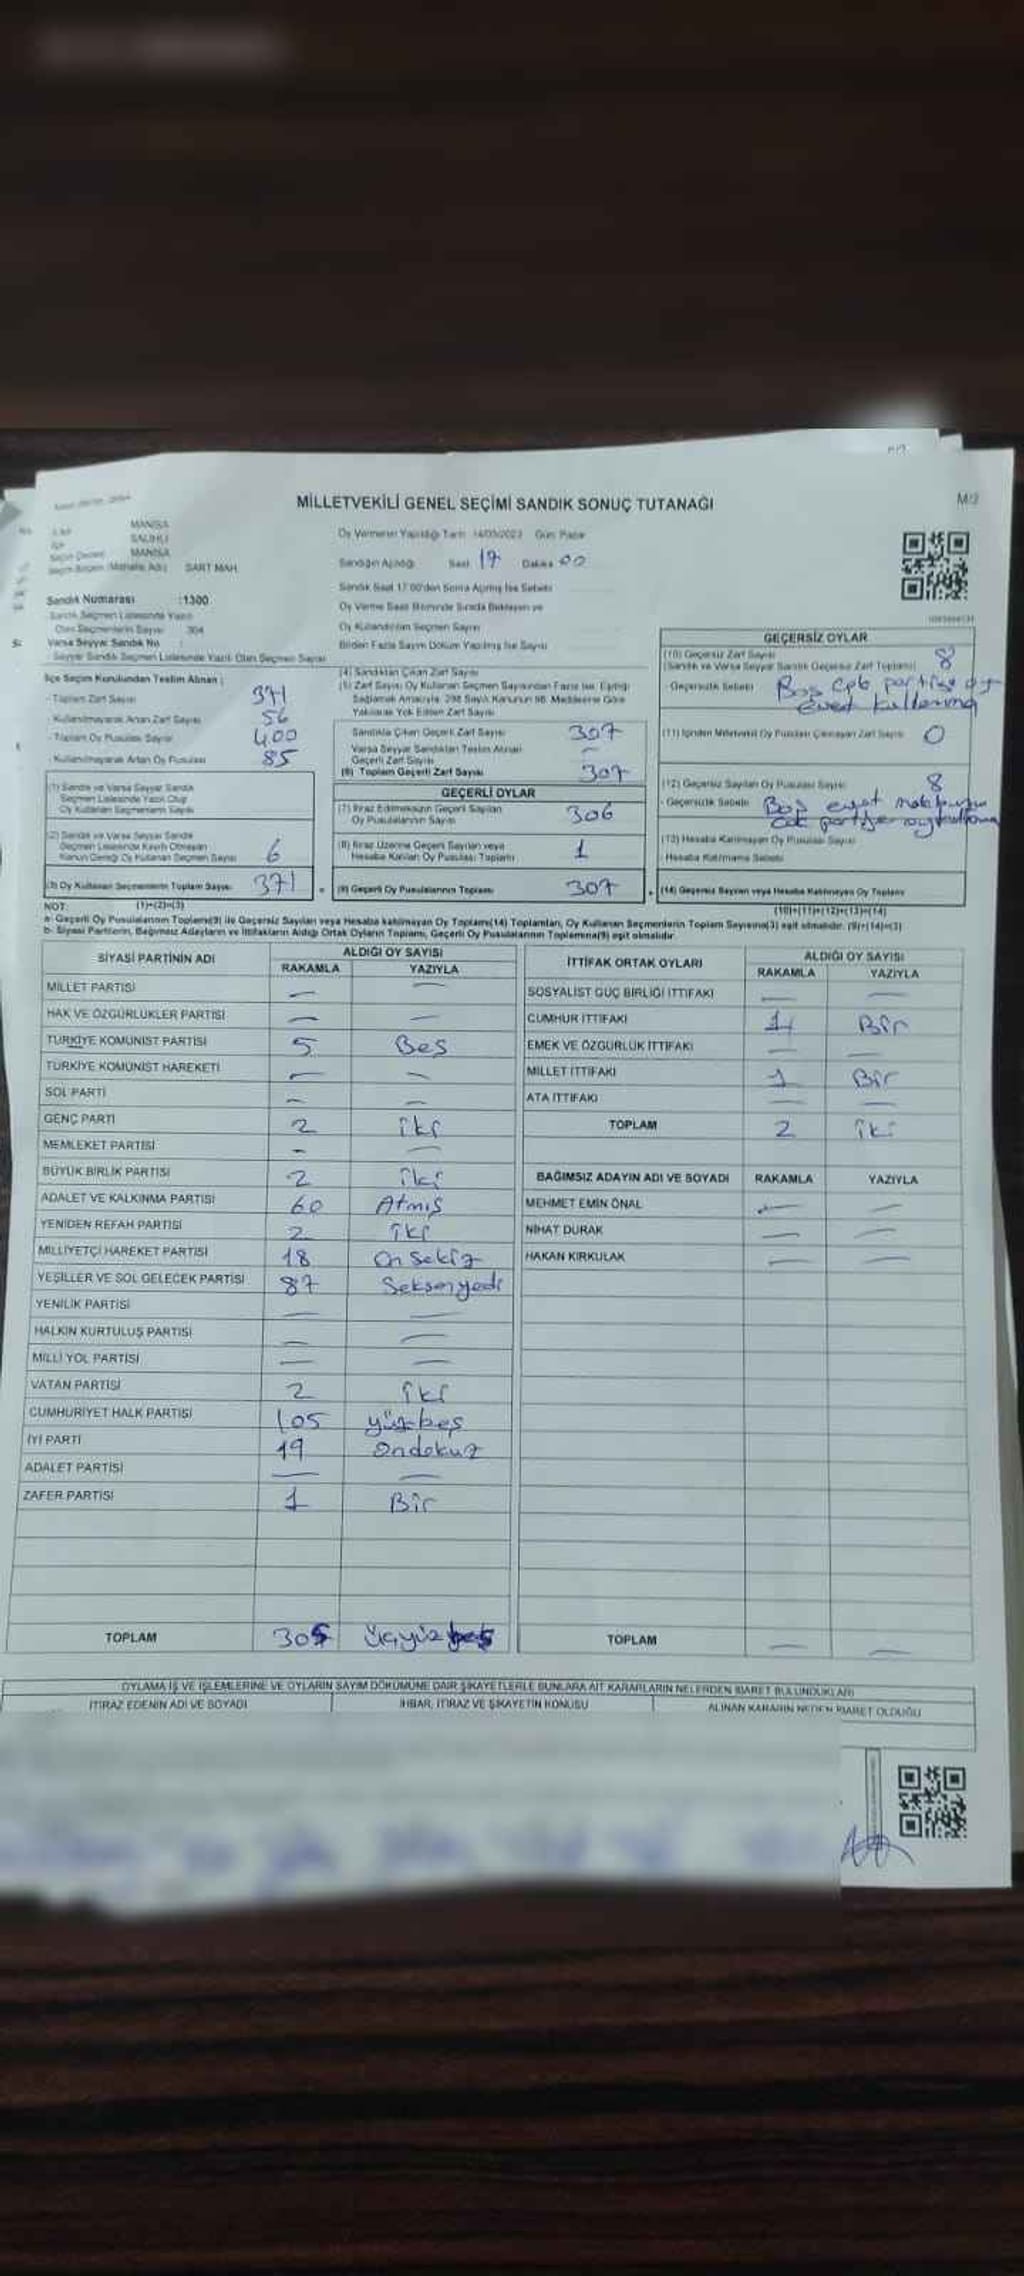 M/2
MİLLETVEKİLİ GENEL SEÇİMİ SANDIK SONUÇ TUTANAĞI
MANİSA
SALİHLİ
MANİSA
Seçim Bölgesi (Mahalle Adı) SART MAH.
Oy Vermenin Yapıldığı Tarih 14/05/2023 Gün: Pazar
Sandığın Açıldığı Saat 17 Dakika 00
Sandık Saat 17:00'den Sonra Açılmış İse Sebebi
Sandık Numarası :1300
Sandık Seçmen Listesinde Yazılı
Olan Seçmenlerin Sayısı 364
Varsa Seyyar Sandık No :
Seyyar Sandık Seçmen Listesinde Yazılı Olan Seçmen Sayısı
Oy Verme Saati Bitiminde Sırada Bekleyen ve
Oy Kullandırılan Seçmen Sayısı
Birden Fazla Sayım Döküm Yapılmış İse Sayısı
İlçe Seçim Kurulundan Teslim Alınan :
- Toplam Zarf Sayısı 371
- Kullanılmayarak Artan Zarf Sayısı 56
- Toplam Oy Pusulası Sayısı 400
- Kullanılmayarak Artan Oy Pusulası 85
(1) Sandık ve Varsa Seyyar Sandık
Seçmen Listesinde Yazılı Olup
Oy Kullanan Seçmenlerin Sayısı
(2) Sandık ve Varsa Seyyar Sandık
Seçmen Listesinde Kayıtlı Olmayan
Kanun Gereği Oy Kullanan Seçmen Sayısı 6
(3) Oy Kullanan Seçmenlerin Toplam Sayısı 371
(4) Sandıktan Çıkan Zarf Sayısı
(5) Zarf Sayısı Oy Kullanan Seçmen Sayısından Fazla İse, Eşitliği
Sağlamak Amacıyla, 298 Sayılı Kanunun 98. Maddesine Göre
Yakılarak Yok Edilen Zarf Sayısı
Sandıkta Çıkan Geçerli Zarf Sayısı 307
Varsa Seyyar Sandıktan Teslim Alınan
Geçerli Zarf Sayısı —
(6) Toplam Geçerli Zarf Sayısı 307
GEÇERLİ OYLAR
(7) İtiraz Edilmeksizin Geçerli Sayılan
Oy Pusulalarının Sayısı 306
(8) İtiraz Üzerine Geçerli Sayılan veya
Hesaba Katılan Oy Pusulası Toplamı 1
(9) Geçerli Oy Pusulalarının Toplamı 307
GEÇERSİZ OYLAR
(10) Geçersiz Zarf Sayısı
(Sandık ve Varsa Seyyar Sandık Geçersiz Zarf Toplamı) 8
- Geçersizlik Sebebi Boş
evet
(11) İçinden Milletvekili Oy Pusulası Çıkmayan Zarf Sayısı 0
(12) Geçersiz Sayılan Oy Pusulası Sayısı 8
- Geçersizlik Sebebi Boş evet
(13) Hesaba Katılmayan Oy Pusulası Sayısı
- Hesaba Katılmama Sebebi
(14) Geçersiz Sayılan veya Hesaba Katılmayan Oy Toplamı
NOT: (1)+(2)=(3)
(10)+(11)+(12)+(13)=(14)
a- Geçerli Oy Pusulalarının Toplamı(9) ile Geçersiz Sayılan veya Hesaba katılmayan Oy Toplam(14) Toplamları, Oy Kullanan Seçmenlerin Toplam Sayısına(3) eşit olmalıdır. (9)+(14)=(3)
b- Siyasi Partilerin, Bağımsız Adayların ve İttifakların Aldığı Ortak Oyların Toplamı, Geçerli Oy Pusulalarının Toplamına(9) eşit olmalıdır.
SİYASİ PARTİNİN ADI ALDIĞI OY SAYISI
RAKAMLA YAZIYLA
MİLLET PARTİSİ — —
HAK VE ÖZGÜRLÜKLER PARTİSİ — —
TÜRKİYE KOMÜNİST PARTİSİ 5 Beş
TÜRKİYE KOMÜNİST HAREKETİ — —
SOL PARTİ — —
GENÇ PARTİ 2 İki
MEMLEKET PARTİSİ — —
BÜYÜK BİRLİK PARTİSİ 2 İki
ADALET VE KALKINMA PARTİSİ 60 Atmış
YENİDEN REFAH PARTİSİ 2 İki
MİLLİYETÇİ HAREKET PARTİSİ 18 On sekiz
YEŞİLLER VE SOL GELECEK PARTİSİ 87 Seksenyedi
YENİLİK PARTİSİ — —
HALKIN KURTULUŞ PARTİSİ — —
MİLLİ YOL PARTİSİ — —
VATAN PARTİSİ 2 İki
CUMHURİYET HALK PARTİSİ 105 yüzbeş
İYİ PARTİ 19 Ondokuz
ADALET PARTİSİ — —
ZAFER PARTİSİ 1 Bir
TOPLAM 305 üçyüzbeş
İTTİFAK ORTAK OYLARI ALDIĞI OY SAYISI
RAKAMLA YAZIYLA
SOSYALİST GÜÇ BİRLİĞİ İTTİFAKI — —
CUMHUR İTTİFAKI 1 Bir
EMEK VE ÖZGÜRLÜK İTTİFAKI — —
MİLLET İTTİFAKI 1 Bir
ATA İTTİFAKI — —
TOPLAM 2 İki
BAĞIMSIZ ADAYIN ADI VE SOYADI RAKAMLA YAZIYLA
MEHMET EMİN ÖNAL — —
NİHAT DURAK — —
HAKAN KIRKULAK — —
TOPLAM — —
OYLAMA İŞ VE İŞLEMLERİNE VE OYLARIN SAYIM DÖKÜMÜNE DAİR ŞİKAYETLERLE BUNLARA AİT KARARLARIN NELERDEN İBARET BULUNDUKLARI
İTİRAZ EDENİN ADI VE SOYADI İHBAR, İTİRAZ VE ŞİKAYETİN KONUSU ALINAN KARARIN NEDEN İBARET OLDUĞU